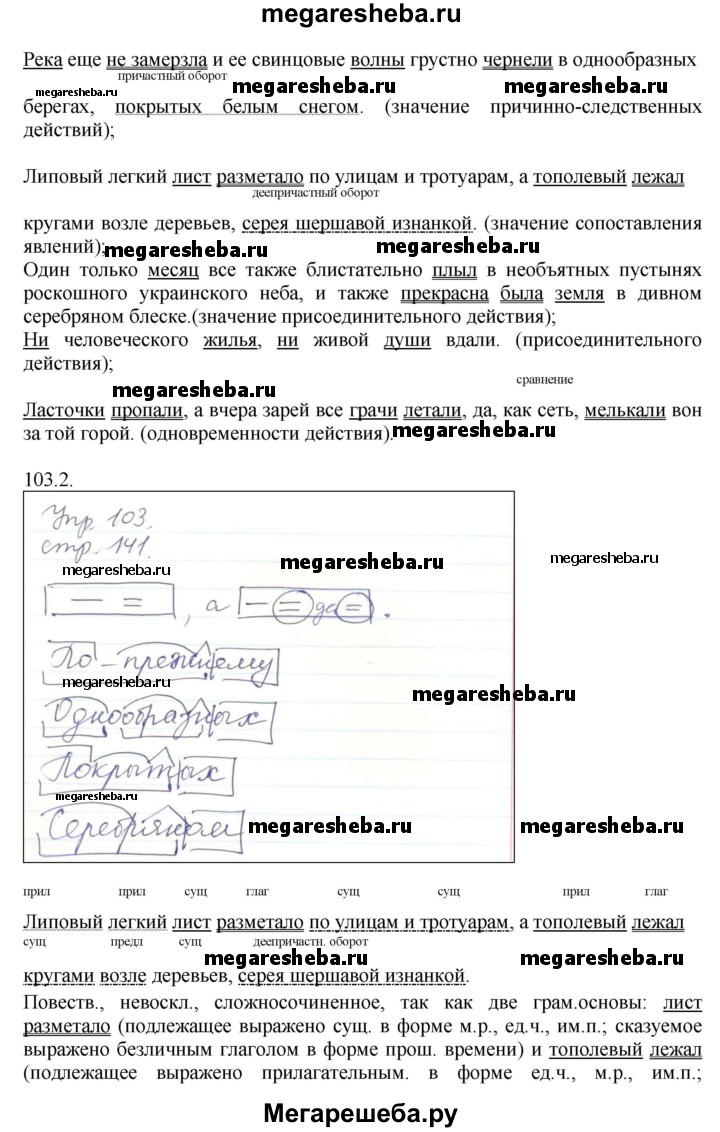 megaresheba.ru
Река еще не замерзла и ее свинцовые волны грустно чернели в однообразных
причастный оборот
megaresheba.ru megaresheba.ru megaresheba.ru
берегах, покрытых белым снегом. (значение причинно-следственных
действий);
Липовый легкий лист разметало по улицам и тротуарам, а тополевый лежал
деепричастный оборот
кругами возле деревьев, серея шершавой изнанкой. (значение сопоставления
явлений);
megaresheba.ru megaresheba.ru
Один только месяц все также блистательно плыл в необъятных пустынях
роскошного украинского неба, и также прекрасна была земля в дивном
серебряном блеске.(значение присоединительного действия);
Ни человеческого жилья, ни живой души вдали. (присоединительного
действия);
сравнение
megaresheba.ru
Ласточки пропали, а вчера зарей все грачи летали, да, как сеть, мелькали вон
за той горой. (одновременности действия).
megaresheba.ru
103.2.
Упр. 103.
стр. 141.
megaresheba.ru megaresheba.ru megaresheba.ru
— = , а — = да = .
По-прежнему
megaresheba.ru megaresheba.ru
Однообразных
Покрытых
megaresheba.ru
Серебряном
megaresheba.ru megaresheba.ru
прил прил сущ глаг сущ сущ прил глаг
Липовый легкий лист разметало по улицам и тротуарам, а тополевый лежал
сущ предл сущ деепричастн. оборот
megaresheba.ru megaresheba.ru
кругами возле деревьев, серея шершавой изнанкой.
Повеств., невоскл., сложносочиненное, так как две грам.основы: лист
разметало (подлежащее выражено сущ. в форме м.р., ед.ч., им.п.; сказуемое
выражено безличным глаголом в форме прош. времени) и тополевый лежал
(подлежащее выражено прилагательным. в форме ед.ч., м.р., им.п.;
Мегарешеба.ру